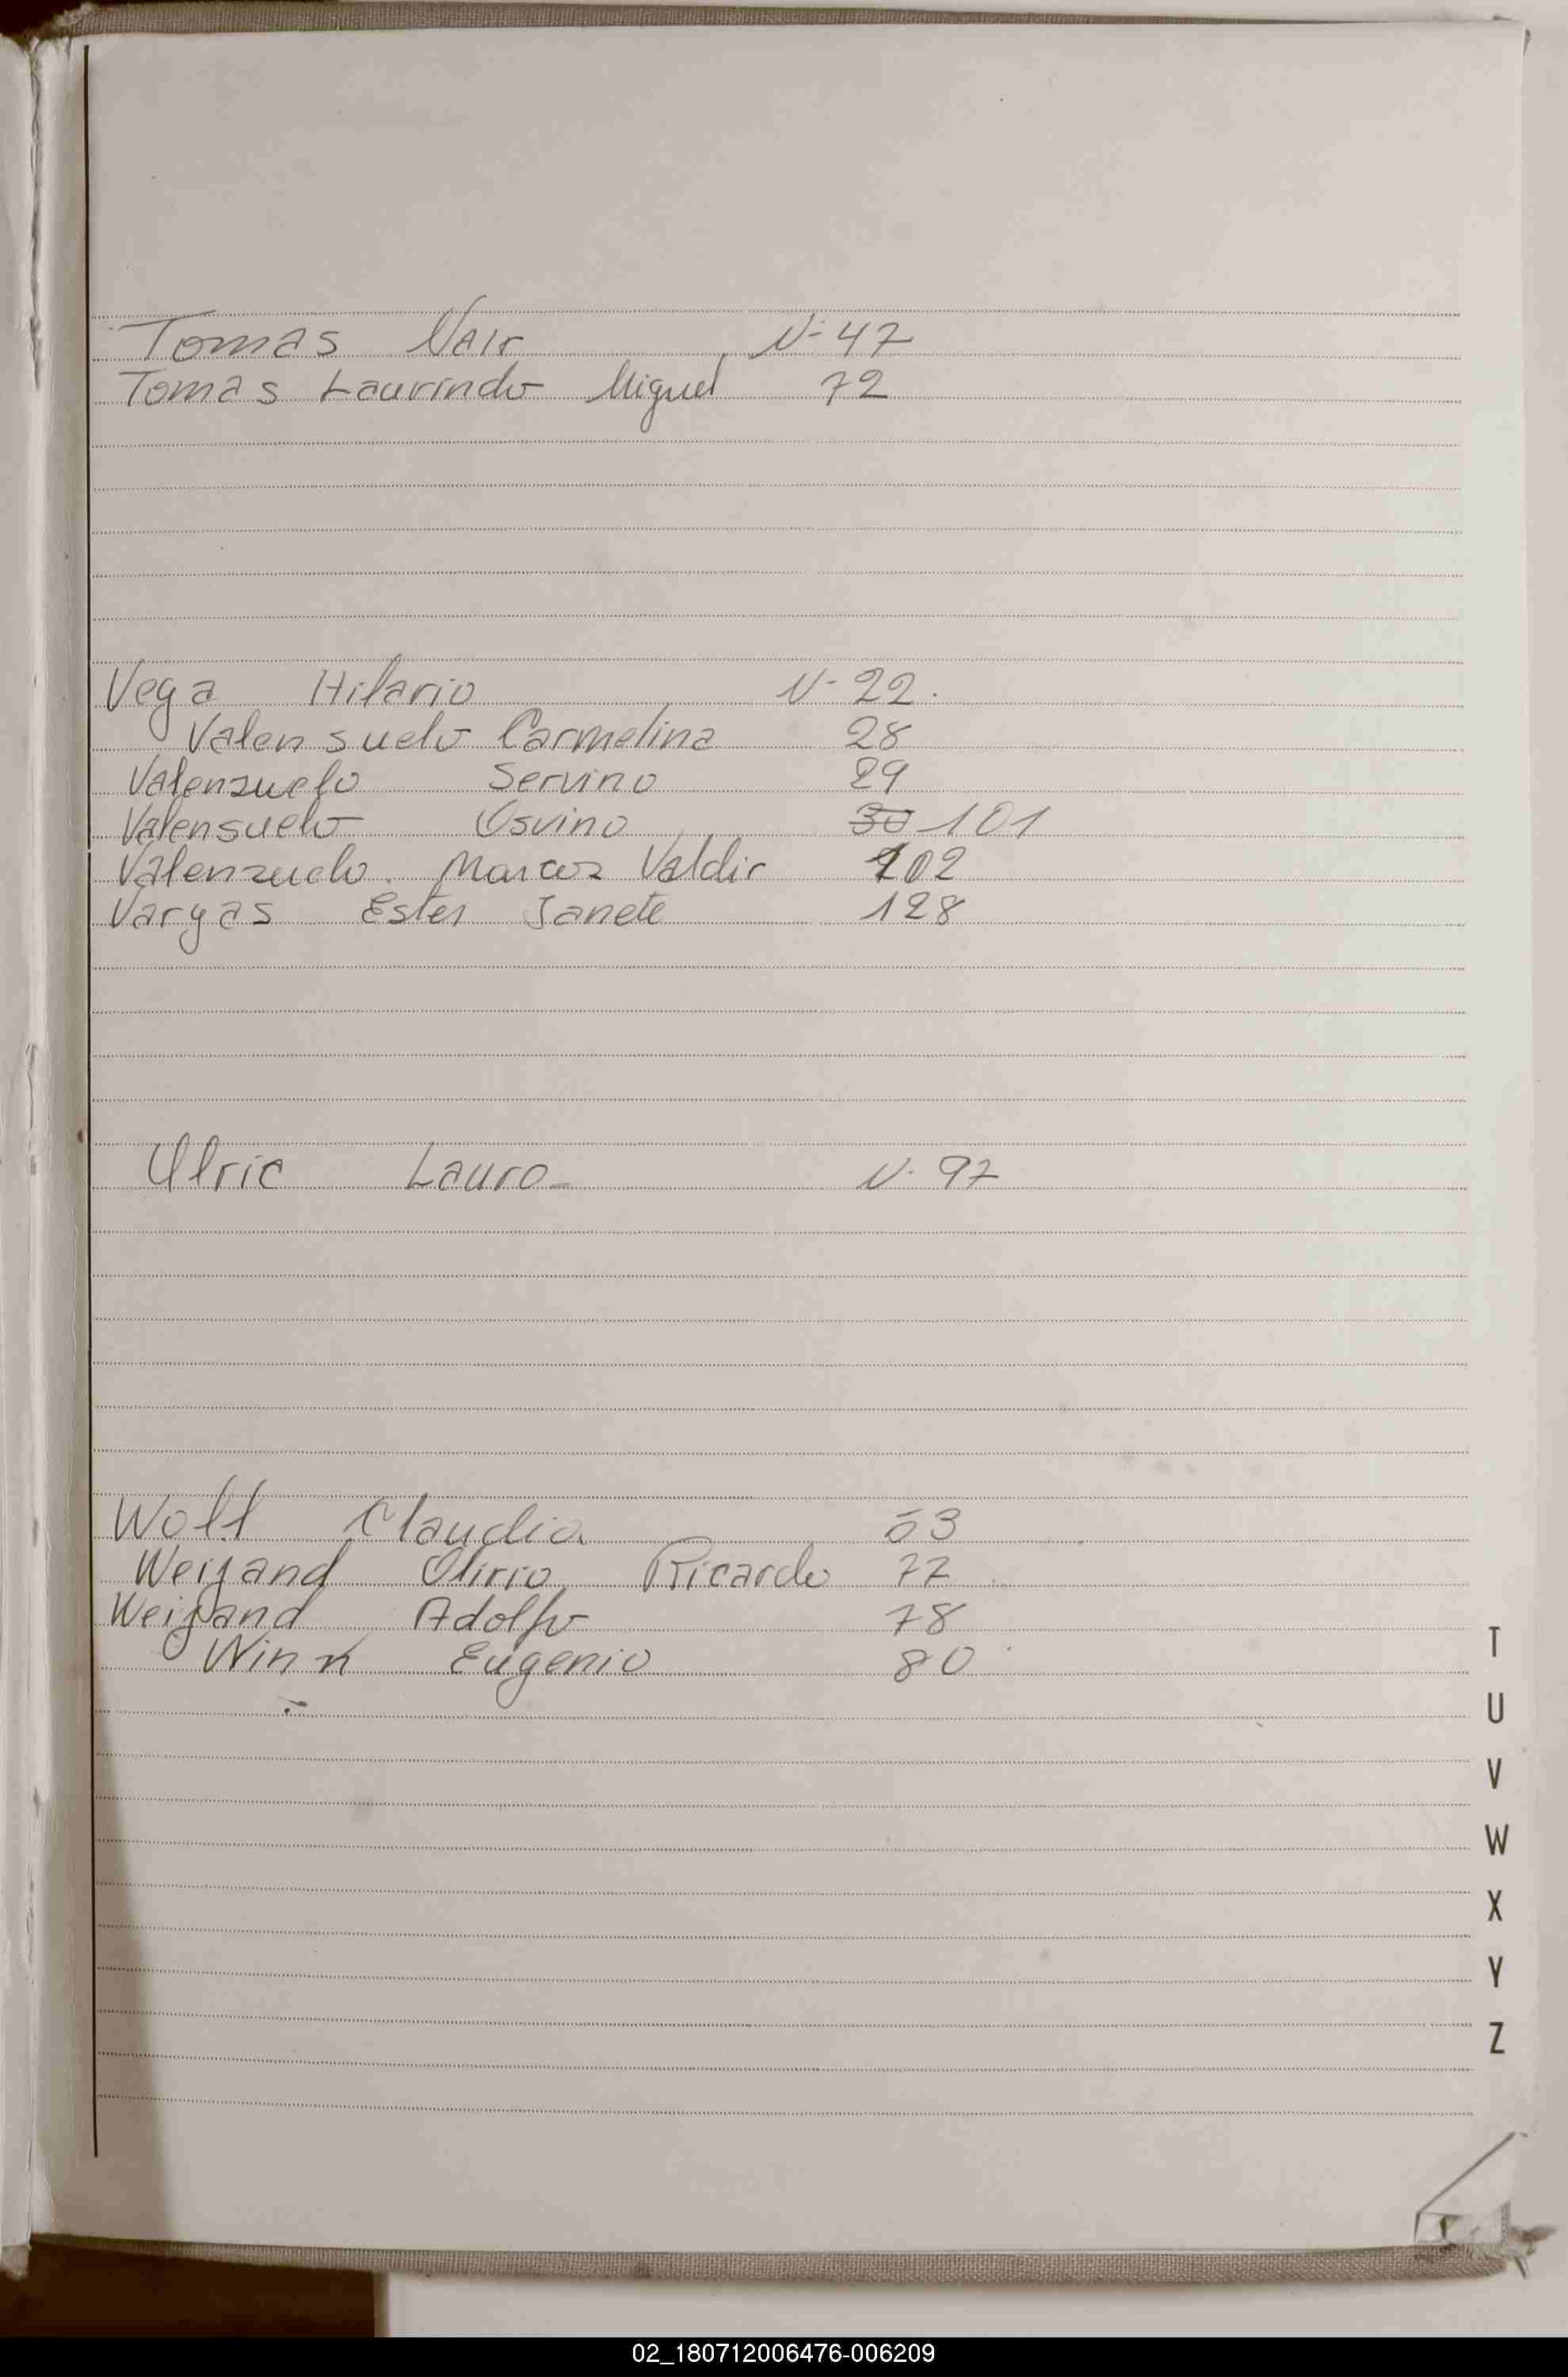 Tomas Nair N-47
Tomas Laurindo Miguel 72
Vega Hilario N- 22.
Valensuelo Carmelina 28
Valenzuelo Servino 29
Valensuelo Osvino 30 101
Valenzuelo. Marcos Valdir 102
Vargas Ester Janete 128
Ulric Lauro - N. 97
Wolf Claudia 53
Weigand Olirio Ricardo 77
Weigand Adolfo 78
Winn Eugenio 80
T
U
V
W
X
Y
Z
02_180712006476-006209